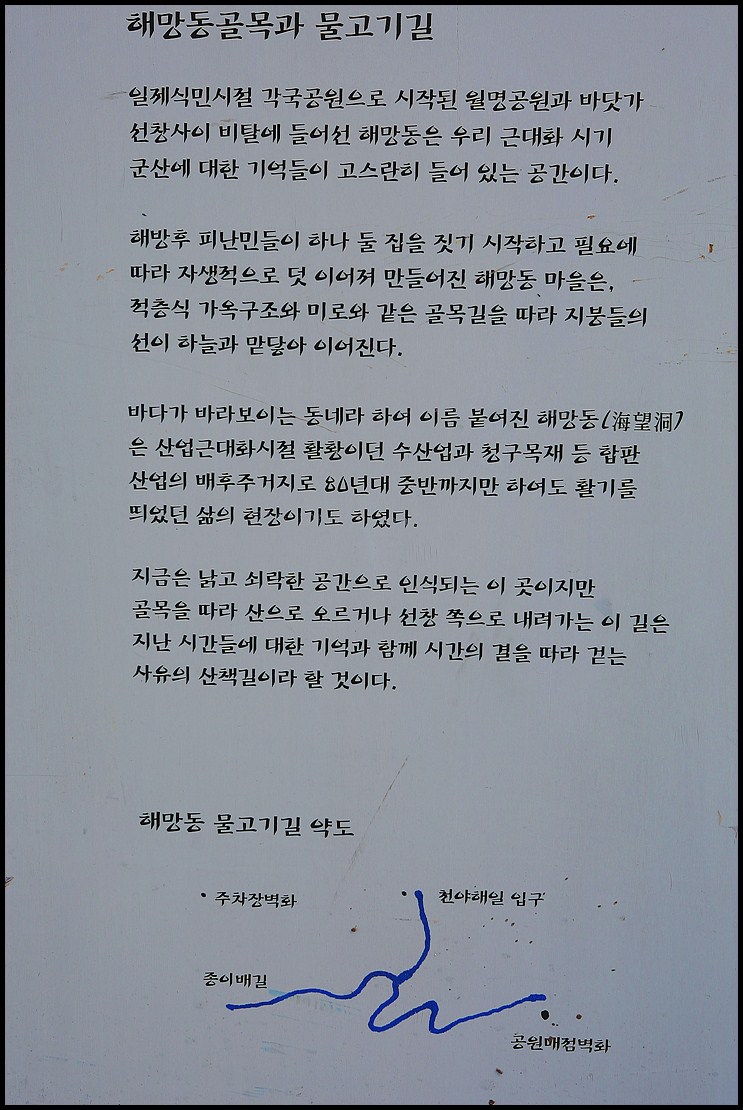 해망동골목과 물고기길
일제식민시절 각국공원으로 시작된 월명공원과 바닷가
선창사이 비탈에 들어선 해망동은 우리 근대화 시기
군산에 대한 기억들이 고스란히 들어 있는 공간이다.
해방후 피난민들이 하나 둘 집을 짓기 시작하고 필요에
따라 자생적으로 덧 이어져 만들어진 해망동 마을은,
적층식 가옥구조와 미로와 같은 골목길을 따라 지붕들의
선이 하늘과 맏닿아 이어진다.
바다가 바라보이는 동네라 하여 이름 붙여진 해망동(海望洞)
은 산업근대화시절 활황이던 수산업과 청구목재 등 합판
산업의 배후주거지로 80년대 중반까지만 하여도 활기를
띄었던 삶의 현장이기도 하였다.
지금은 낡고 쇠락한 공간으로 인식되는 이 곳이지만
골목을 따라 산으로 오르거나 선창 쪽으로 내려가는 이 길은
지난 시간들에 대한 기억과 함께 시간의 결을 따라 걷는
사유의 산책길이라 할 것이다.
해망동 물고기길 약도
주차장벽화
천야해일 입구
종이배길
공원매점벽화